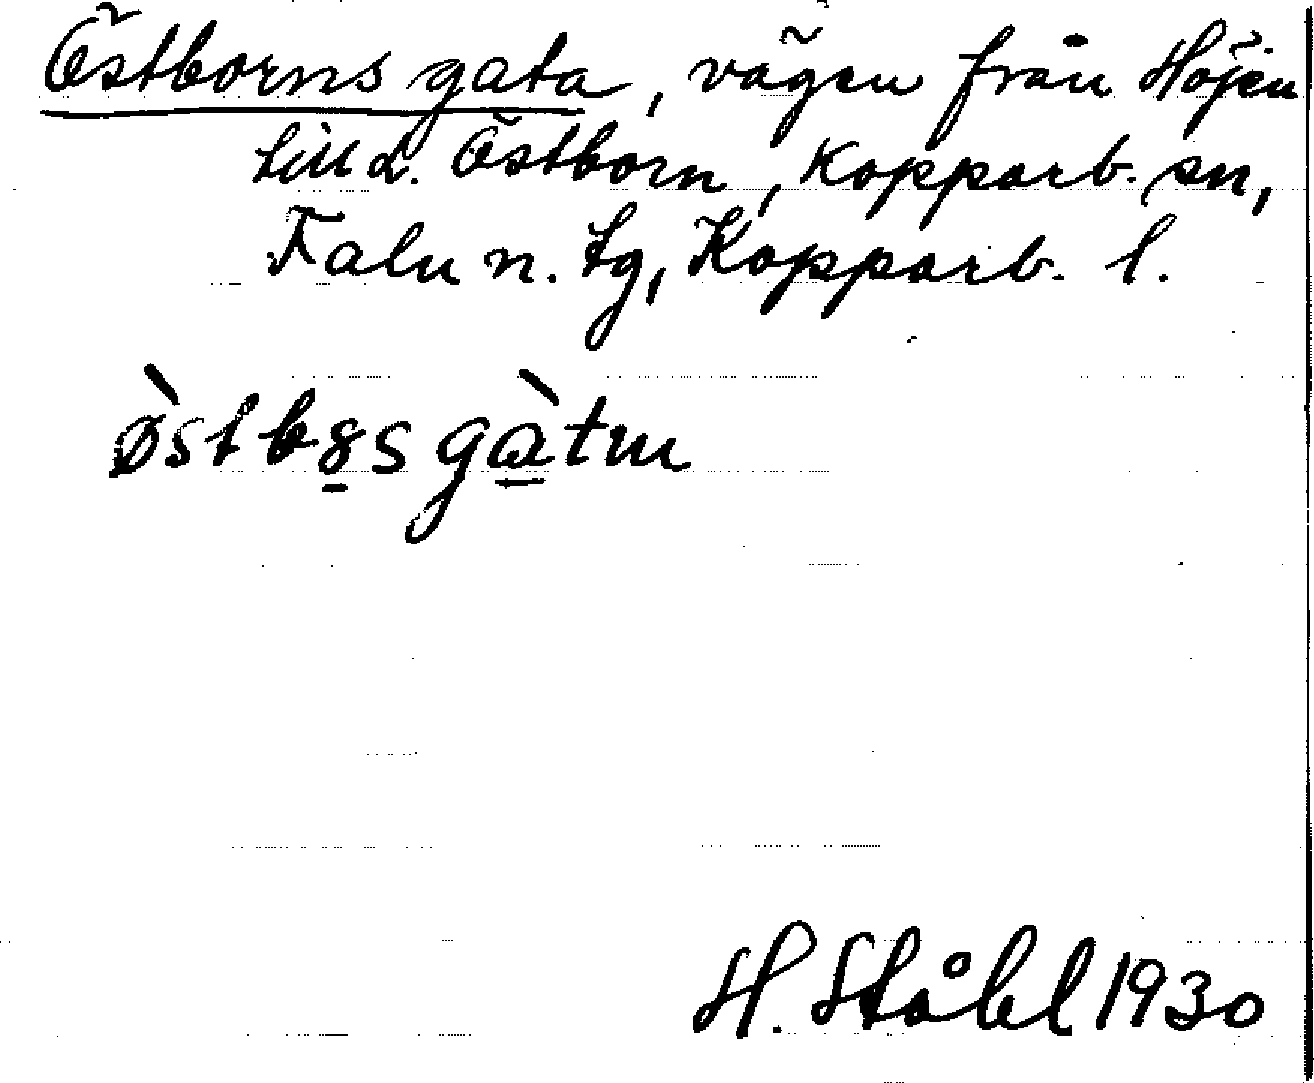 Östborns gata, vägen från Höjen
till L. Östborn, Kopparb. sn,
Falu n. tg, Kopparb. l.
H. Ståhl 1930